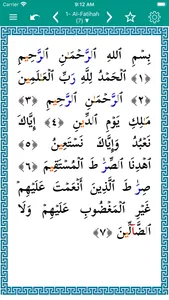 Carrier 9:12 AM
1- Al-Fatihah
(7) ▼
بِسْمِ ٱللَّهِ ٱلرَّحْمَـٰنِ ٱلرَّحِيمِ
﴿١﴾ ٱلْحَمْدُ لِلَّهِ رَبِّ ٱلْعَـٰلَمِينَ
﴿٢﴾ ٱلرَّحْمَـٰنِ ٱلرَّحِيمِ ﴿٣﴾
مَـٰلِكِ يَوْمِ ٱلدِّينِ ﴿٤﴾ إِيَّاكَ
نَعْبُدُ وَإِيَّاكَ نَسْتَعِينُ ﴿٥﴾
ٱهْدِنَا ٱلصِّرَٰطَ ٱلْمُسْتَقِيمَ ﴿٦﴾
صِرَٰطَ ٱلَّذِينَ أَنْعَمْتَ عَلَيْهِمْ
غَيْرِ ٱلْمَغْضُوبِ عَلَيْهِمْ وَلَا
ٱلضَّآلِّينَ ﴿٧﴾